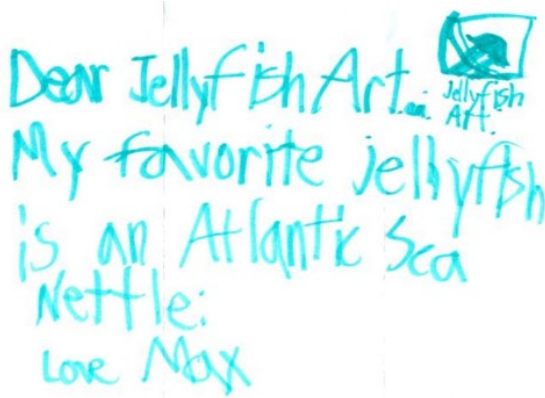 Dear Jellyfish Art...
Jellyfish
Art.
My favorite jellyfish
is an Atlantic Sea
Nettle:
Love Max